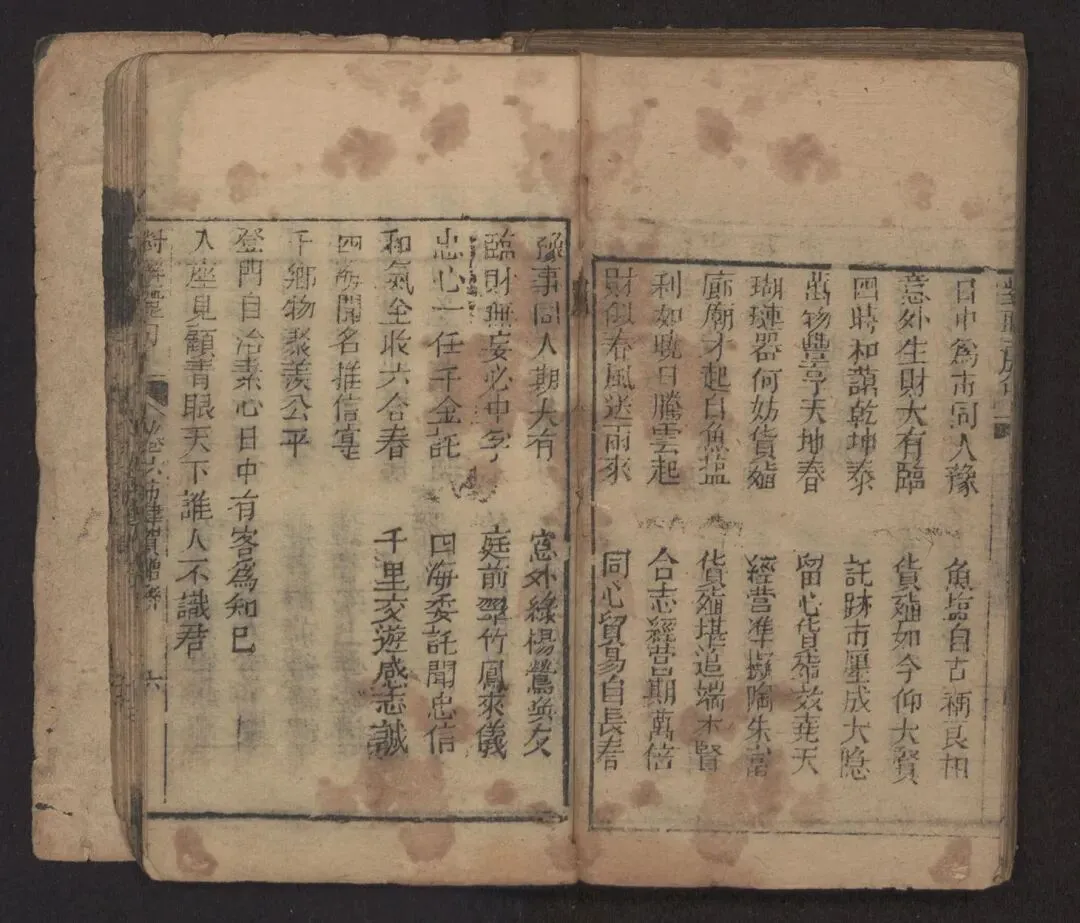 日中為市同人豫
魚塩自古稱良相
意外生財大有臨
貨殖如今仰大賢
四時和藹乾坤泰
託跡市廛成大隐
萬物豊亨天地春
留心貨殖效堯天
瑚璉器何妨貨殖
經营準擬陶朱富
廊廟才起自魚塩
貨殖堪追端木賢
利如曉日騰雲起
合志經营期萬倍
財似春風送雨來
同心貿易自長春
豫事同人期大有
窓外綠楊鶯喚友
臨財無妄必中孚
庭前翠竹鳳來儀
忠心一任千金託
四海委託聞忠信
和氣全收六合春
千里交遊感志誠
四海聞名推信寔
千鄉物聚羡公平
登門自治素心日中有客為知巳
入座見顧青眼天下誰人不識君
六